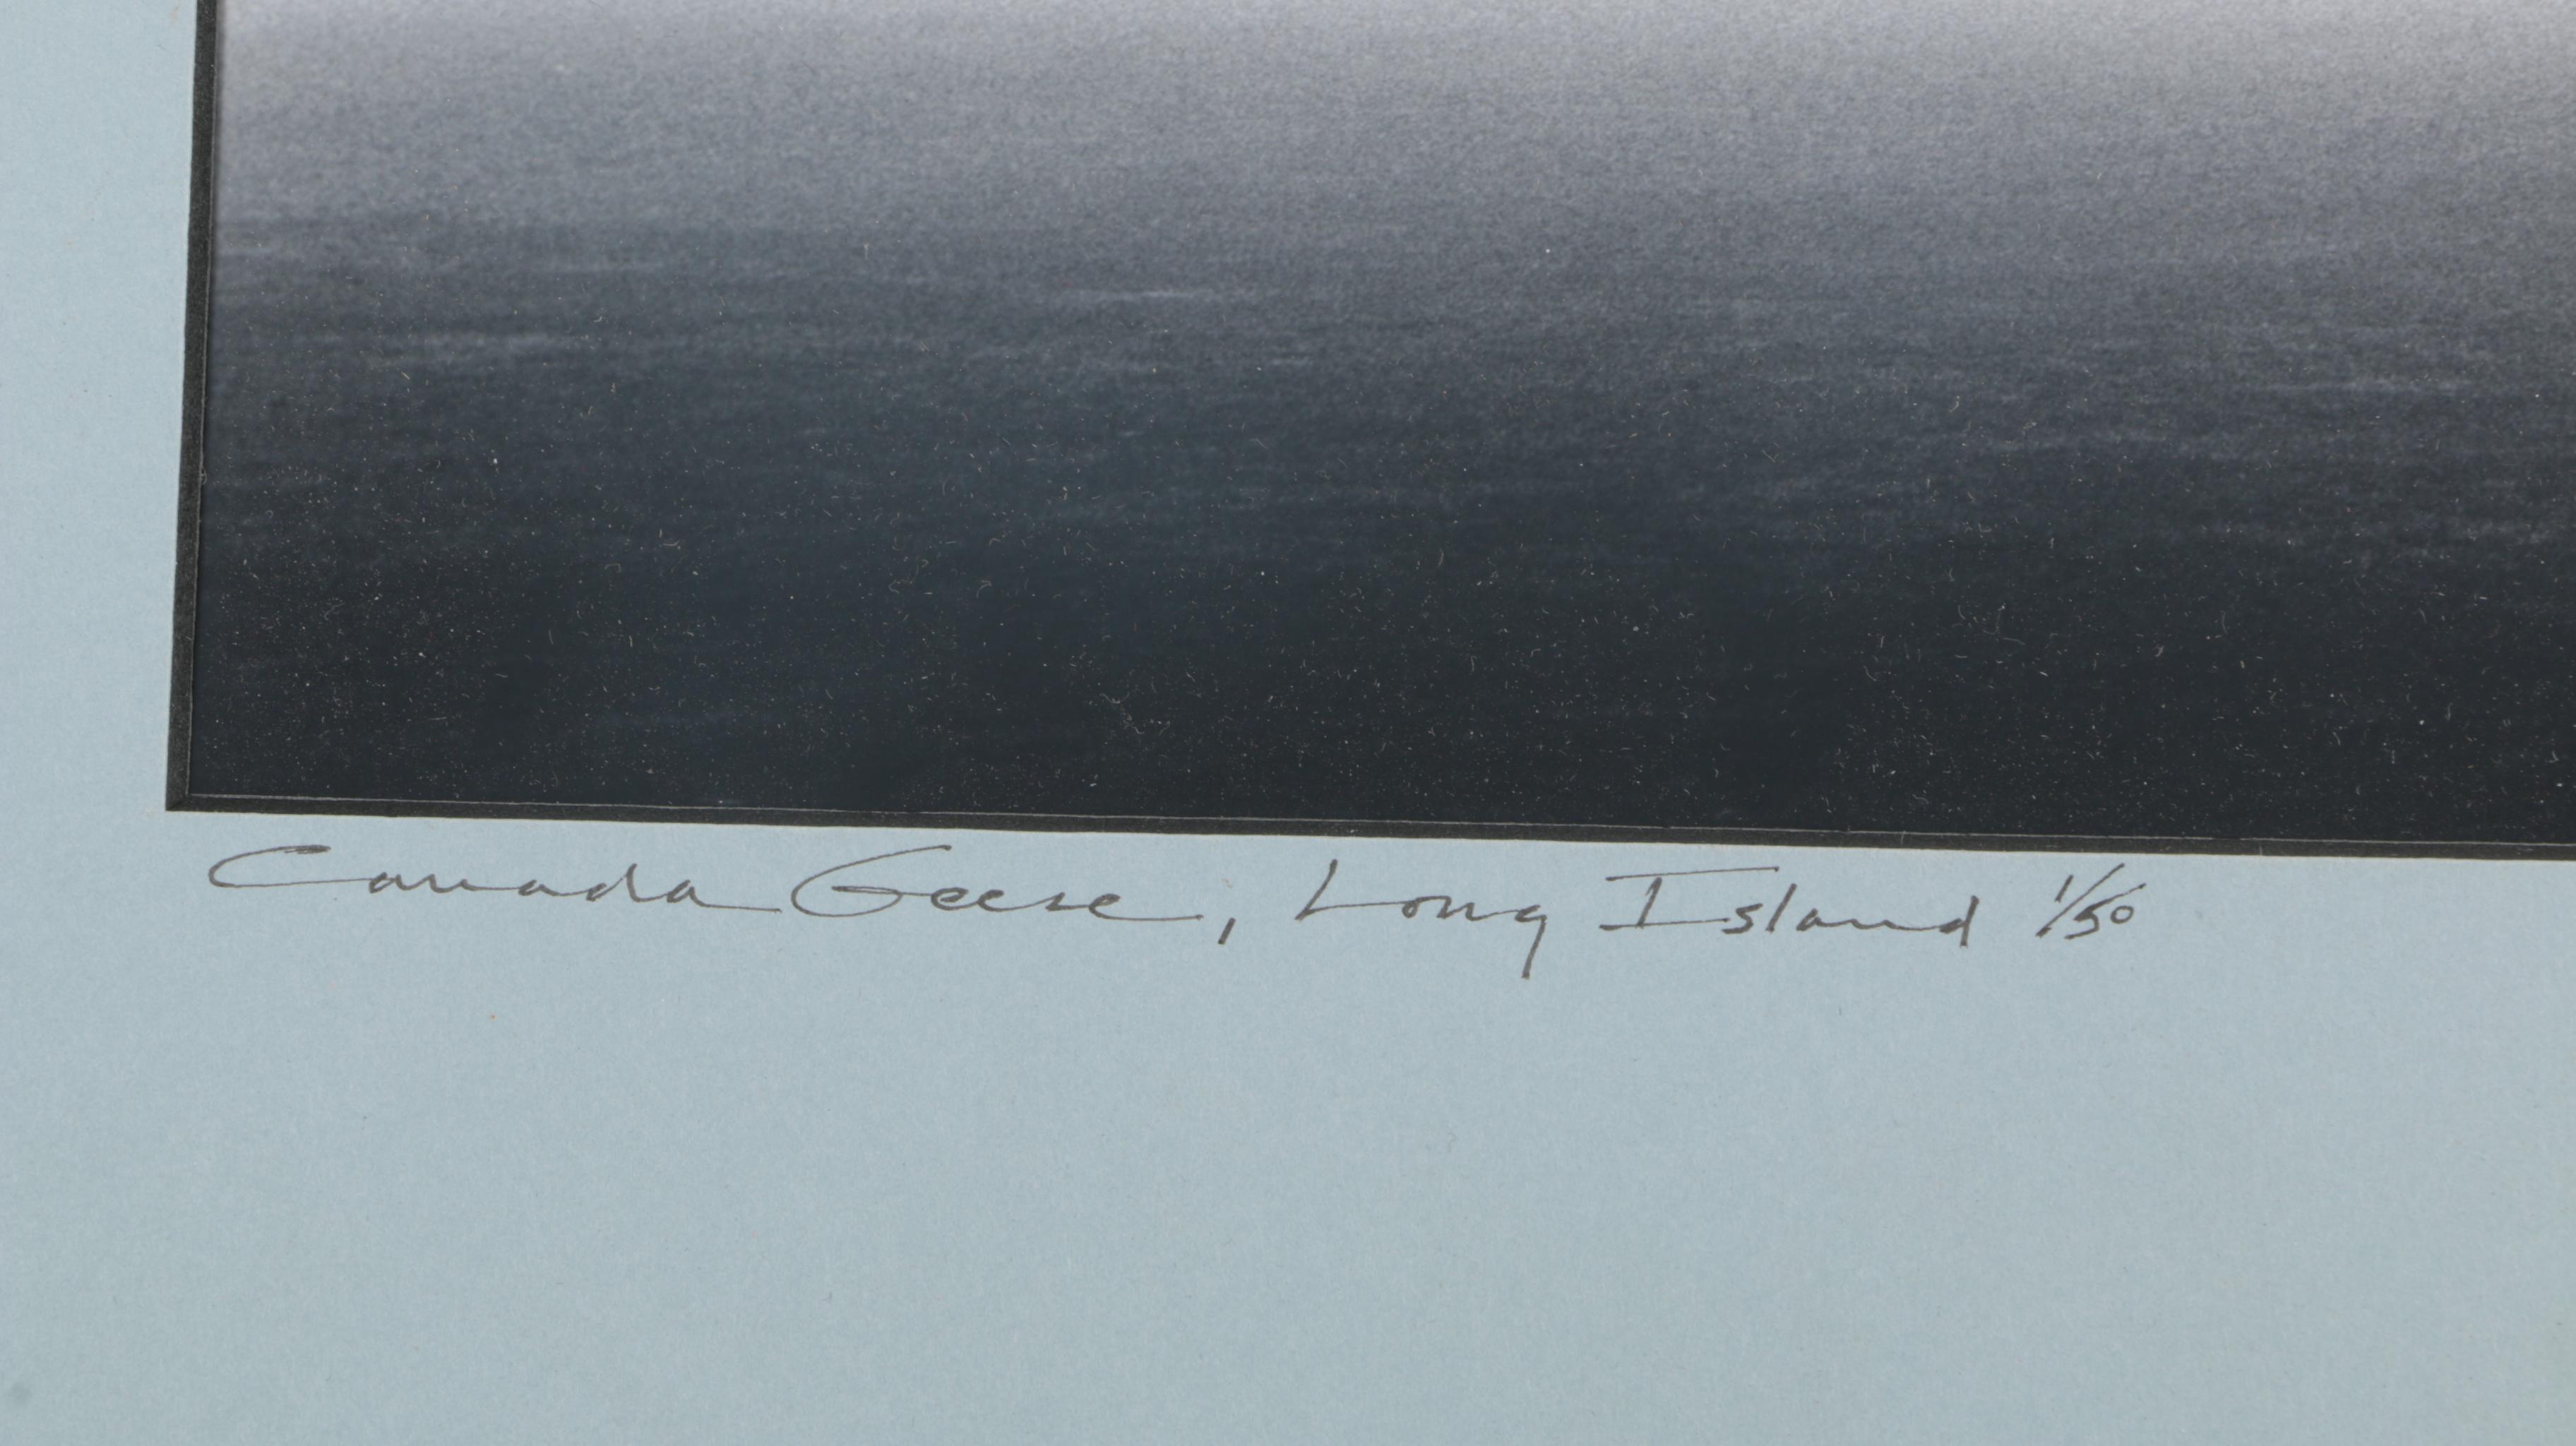 Canada Geese, Long Island 1/50